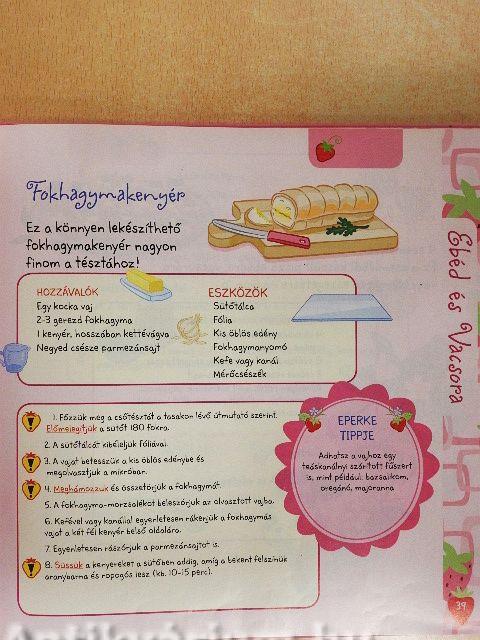 Fokhagymakenyér
Ez a könnyen lekészíthető
fokhagymakenyér nagyon
finom a tésztához!
HOZZÁVALÓK
Egy kocka vaj
2-3 gerezd fokhagyma
1 kenyér, hosszában kettévágva
Negyed csésze parmezánsajt
ESZKÖZÖK
Sütőtálca
Fólia
Kis öblös edény
Fokhagymanyomó
Kefe vagy kanál
Mérőcsészék
1. Főzzük meg a csőtésztát a tasakon lévő útmutató szerint.
Előmelegítjük a sütőt 180 fokra.
2. A sütőtálcát kibéleljük fóliával.
3. A vajat betesszük a kis öblös edénybe és
megolvasztjuk a mikróban.
4. Meghámozzuk és összetörjük a fokhagymát.
5. A fokhagyma-morzsalékot beleszórjuk az olvasztott vajba.
6. Kefével vagy kanállal egyenletesen rákenjük a fokhagymás
vajat a két fél kenyér belső oldalára.
7. Egyenletesen rászórjuk a parmezánsajtot is.
8. Süssük a kenyereket a sütőben addig, amíg a bekent felszínük
aranybarna és ropogós lesz (kb. 10-15 perc).
EPERKE
TIPPJE
Adhatsz a vajhoz egy
teáskanálnyi szárított fűszert
is, mint például: bazsalikom,
oregánó, majoranna
Ebéd és Vacsora
39